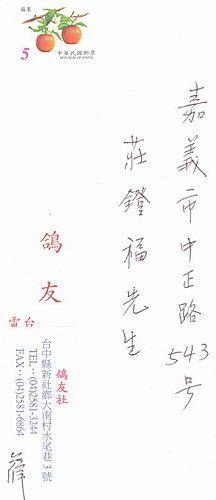 蘋果
5
中華民國郵票
REPUBLIC OF CHINA
嘉義市中正路543号
莊鐙福先生
鴿友
雷台
鴿友社
台中縣新社鄉大南村水尾巷3號
TEL：(04)2581-3244
FAX：(04)2581-6864